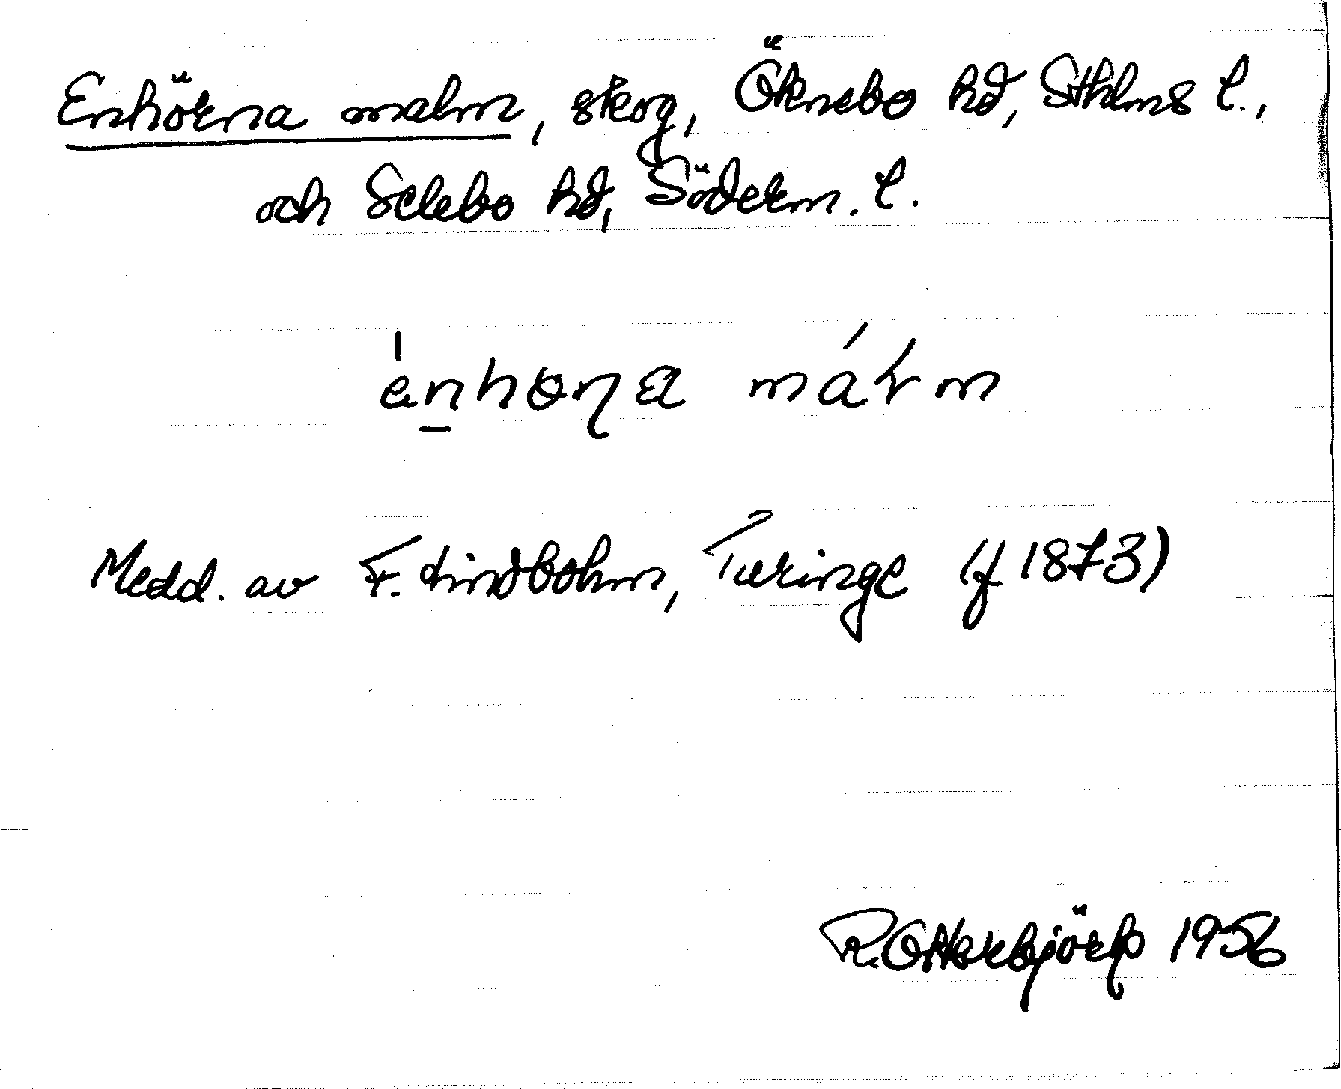 Enhörna malm, skog, Öknebo hd, Sthlms l.,
och Selebo hd, Söderm. l.
Medd. av F. Lindbohm, Turinge (f 1873)
R. Otterbjörk 1956